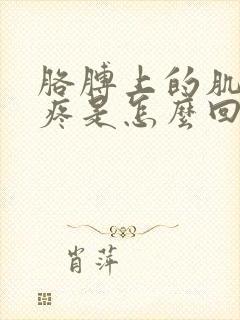 胳膊上的肌
疼是怎麼回
肖萍